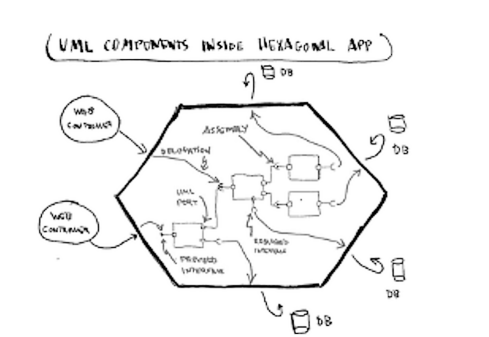 UML COMPONENTS INSIDE HEXAGONAL APP
DB
WEB
CONTROLLER
DB
ASSEMBLY
DELEGATION
UML
PORT
WEB
CONTROLLER
REQUIRED
INTERFACE
PROVIDED
INTERFACE
DB
DB